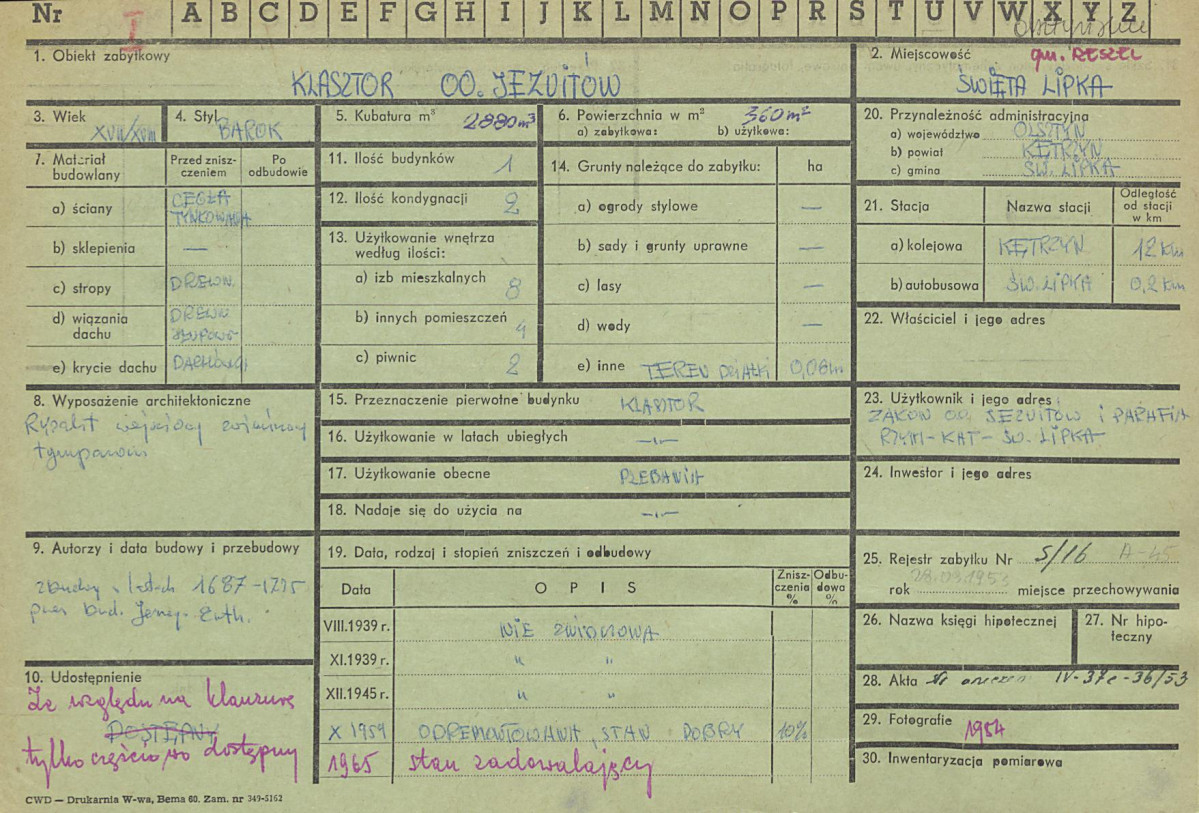 Nr I A B C D E F G H I J K L M N O P R S T U V W X Y Z
1. Obiekt zabytkowy
KLASZTOR OO. JEZUITÓW
2. Miejscowość gm. Reszel
ŚWIĘTA LIPKA
3. Wiek XVII/XVIII
4. Styl BAROK
5. Kubatura m³ 2880m³
6. Powierzchnia w m² 360m²
a) zabytkowa: b) użytkowa:
20. Przynależność administracyjna
a) województwo OLSZTYN
b) powiat KĘTRZYN
c) gmina ŚW. LIPKA
7. Materiał budowlany
Przed znisz-
czeniem
Po
odbudowie
a) ściany CEGŁA
TYNKOWANA
b) sklepienia —
c) stropy DREWN.
d) wiązania
dachu
DREWN
e) krycie dachu
11. Ilość budynków 1
12. Ilość kondygnacji 2
13. Użytkowanie wnętrza
według ilości:
a) izb mieszkalnych 8
b) innych pomieszczeń 4
c) piwnic 2
14. Grunty należące do zabytku: ha
a) ogrody stylowe —
b) sady i grunty uprawne —
c) lasy —
d) wody —
e) inne TEREN DZIAŁKI 0,06
21. Stacja
Nazwa stacji
Odległość
od stacji
w km
a) kolejowa KĘTRZYN 12 km
b) autobusowa ŚW. LIPKA 0,2 km
22. Właściciel i jego adres
8. Wyposażenie architektoniczne
Ryzalit
tympanon
15. Przeznaczenie pierwotne budynku KLASZTOR
16. Użytkowanie w latach ubiegłych —„—
17. Użytkowanie obecne PLEBANIA
18. Nadaje się do użycia na —„—
23. Użytkownik i jego adres
ZAKON OO. JEZUITÓW I PARAFIA
RZYM-KAT- ŚW. LIPKA
24. Inwestor i jego adres
9. Autorzy i data budowy i przebudowy
w latach 1687-1725
przez bud.
19. Data, rodzaj i stopień zniszczeń i odbudowy
Data
O P I S
Znisz-
czenia
%
Odbu-
dowa
%
VIII.1939 r. NIE ZNISZCZONA
XI.1939 r. „ „
XII.1945 r. „ „
X 1959 ODREMONTOWANA, STAN DOBRY 10%
1965 stan zadowalający
25. Rejestr zabytku Nr S/16 A-45
rok 28.03.1953 miejsce przechowywania
26. Nazwa księgi hipotecznej
27. Nr hipo-
teczny
28. Akta IV-37c-36/53
29. Fotografie 1954
30. Inwentaryzacja pomiarowa
10. Udostępnienie
Ze względu na klauzurę
DOSTĘPNY
tylko częściowo dostępny
CWD — Drukarnia W-wa, Bema 60. Zam. nr 349-5162